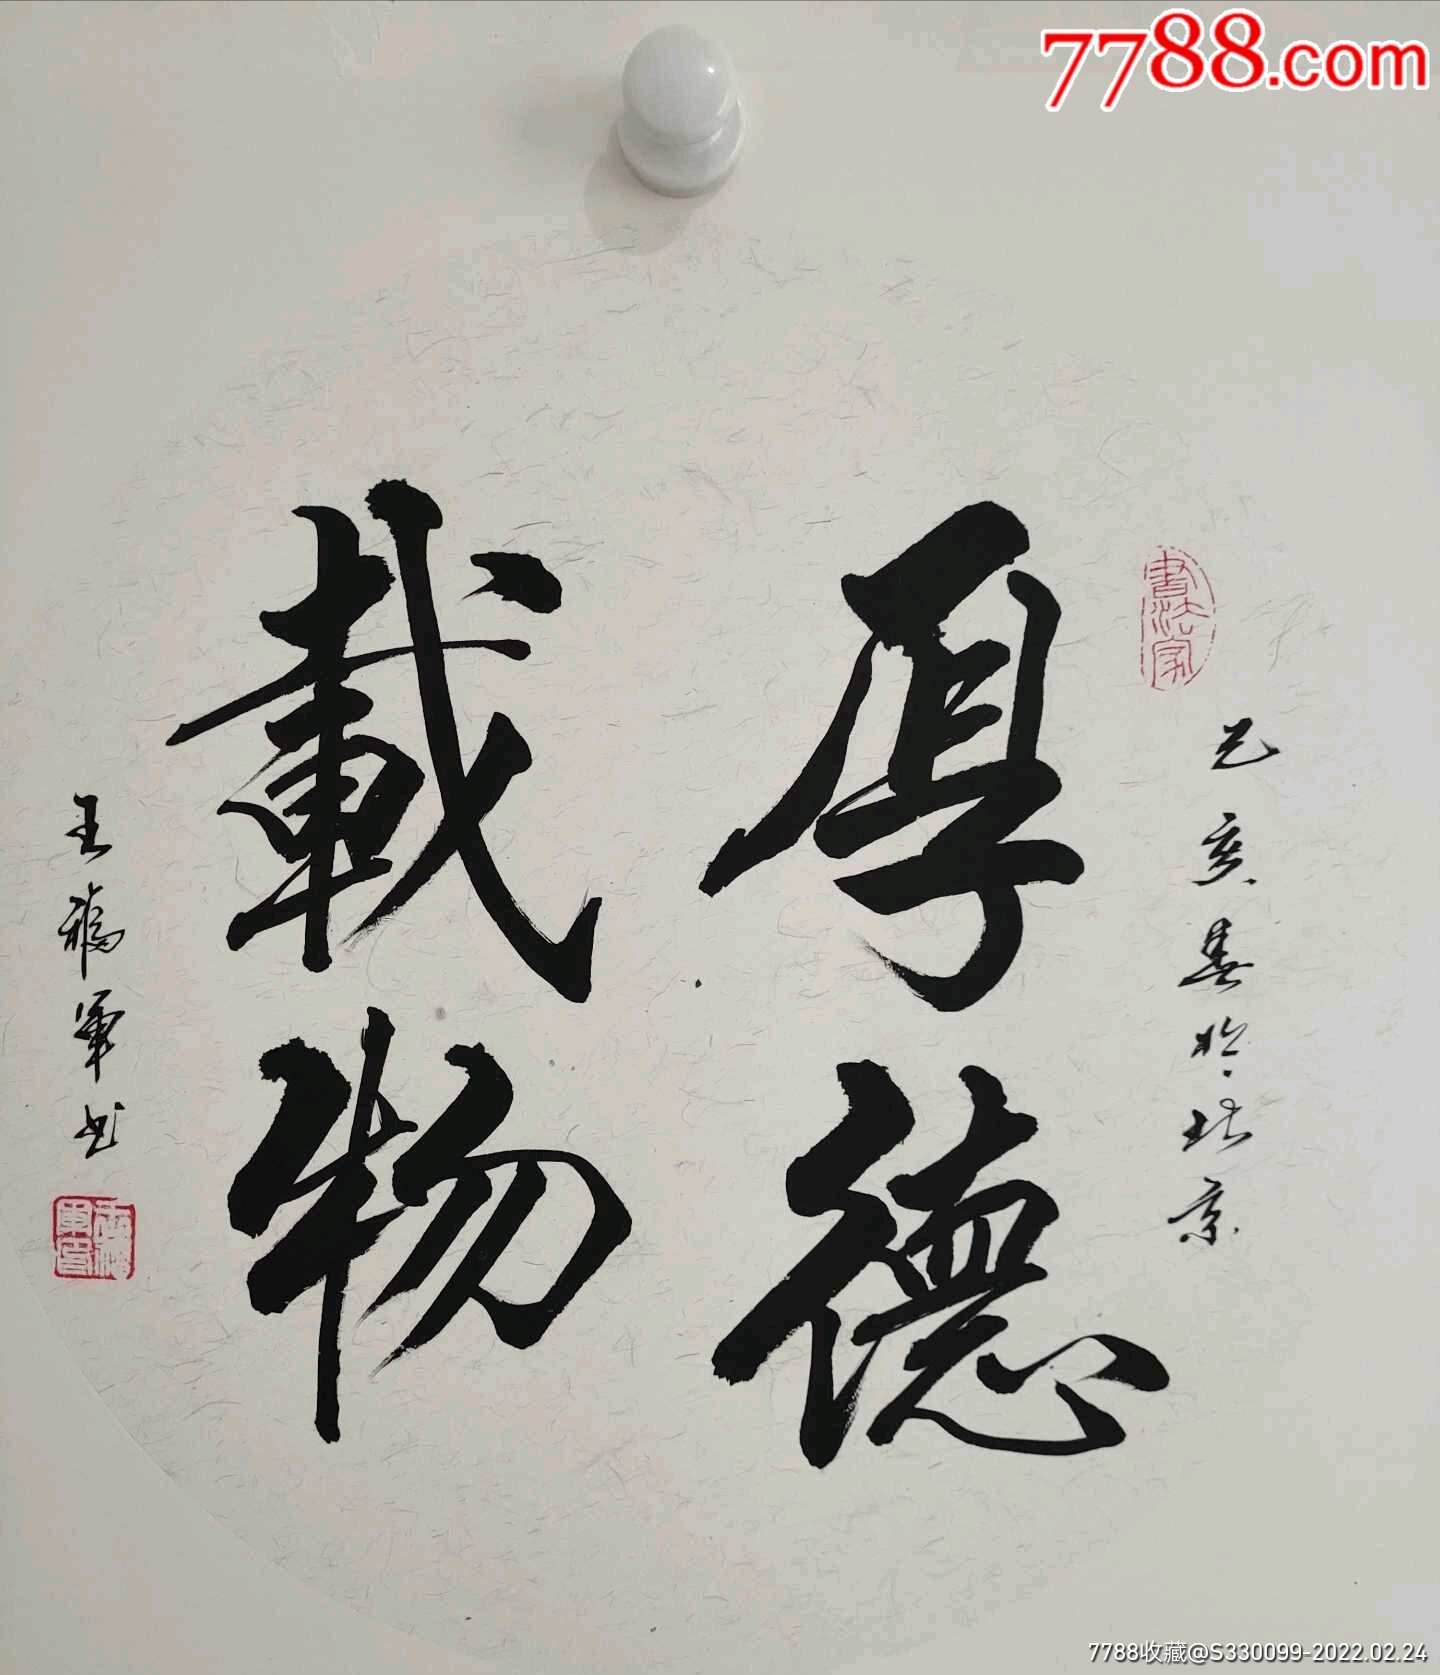 7788.com
書法家
己亥春於北京
厚德
載物
王福軍书
7788收藏@S330099-2022.02.24